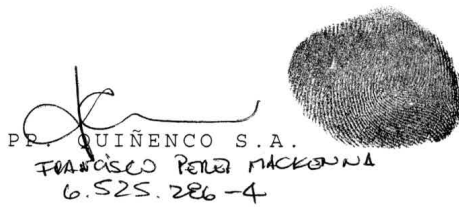 PP. QUIÑENCO S.A.
FRANCISCO PEREZ MACKENNA
6.525.286-4